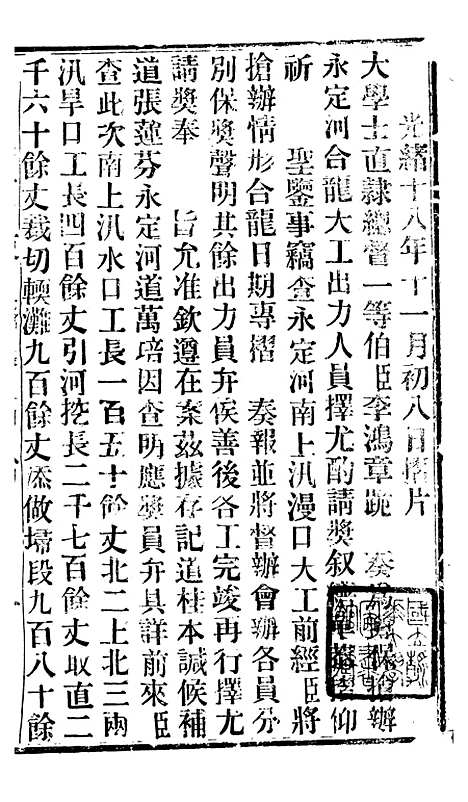 光緒十八年十一月初八日摺片
大學士直隸總督一等伯臣李鴻章跪　奏為 保搶辦
永定河合龍大工出力人員擇尤酌請獎叙 單摺 仰
祈　聖鑒事竊查永定河南上汛漫口大工前經臣將
搶辦情形合龍日期專摺　奏報並將督辦會辦各員分
別保獎聲明其餘出力員弁俟善後各工完竣再行擇尤
請獎奉　旨允准欽遵在案茲據存記道桂本誠候補
道張蓮芬永定河道萬培因查明應獎員弁具詳前來臣
查此次南上汛水口工長一百五十餘丈北二上北三兩
汛旱口工長四百餘丈引河挖長二千七百餘丈取直二
千六十餘丈裁切輭灘九百餘丈添做埽段九百八十餘